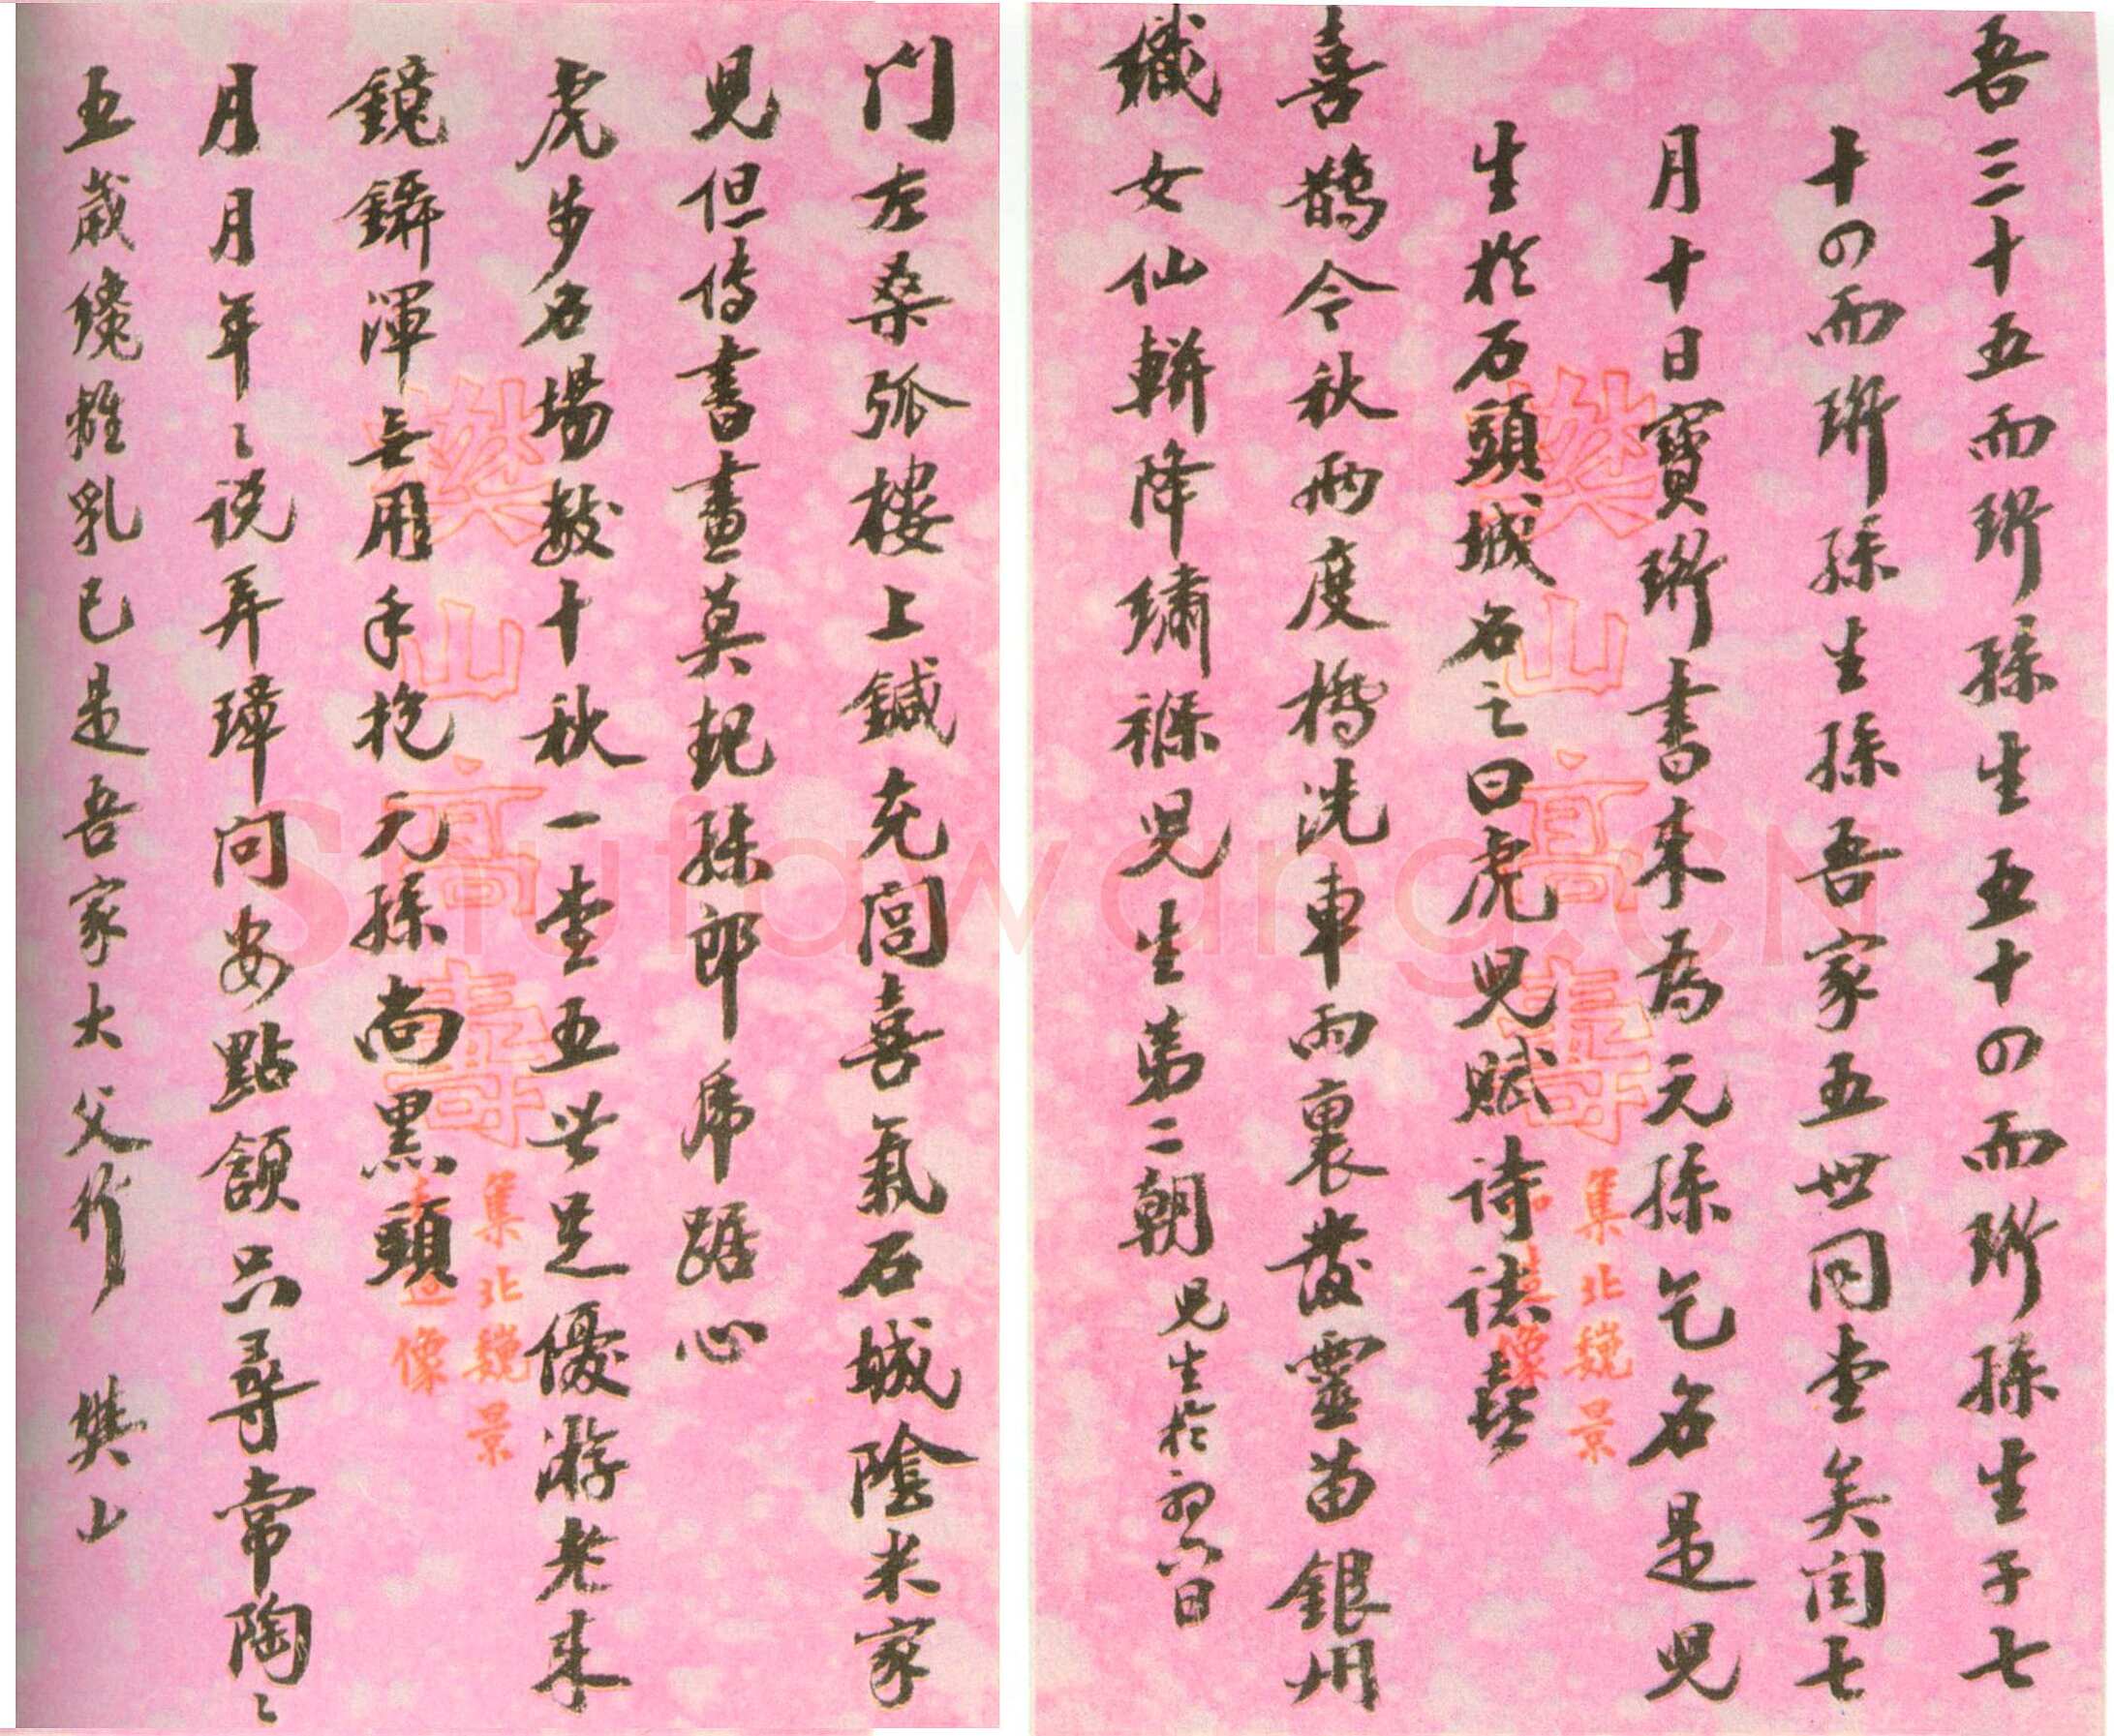 吾三十五而珩孫生五十四而珩孫生子七
十四而珩孫生孫吾家五世同堂矣閏七
月十日寶珩書來為元孫乞名是兒
生於石頭城名之曰虎兒賦詩誌喜
喜鵲今秋兩度橋洗車雨裏發靈苗銀州
織女仙軿降繡褓兒生第二朝 兒生於初八日
門左桑弧樓上鍼充閭喜氣石城陰米家
兒但傳書畫莫把孫郎虎踞心
虎步名場數十秋一堂五世足優游老來
鏡鑷渾無用手抱元孫尚黑頭
月月年〻說弄璋問安點頷只尋常陶〻
五歲纔離乳已是吾家大父行 樊山
樊山高壽
集北魏景
造像
樊山高壽
集北魏景
造像
Shufawang.CN